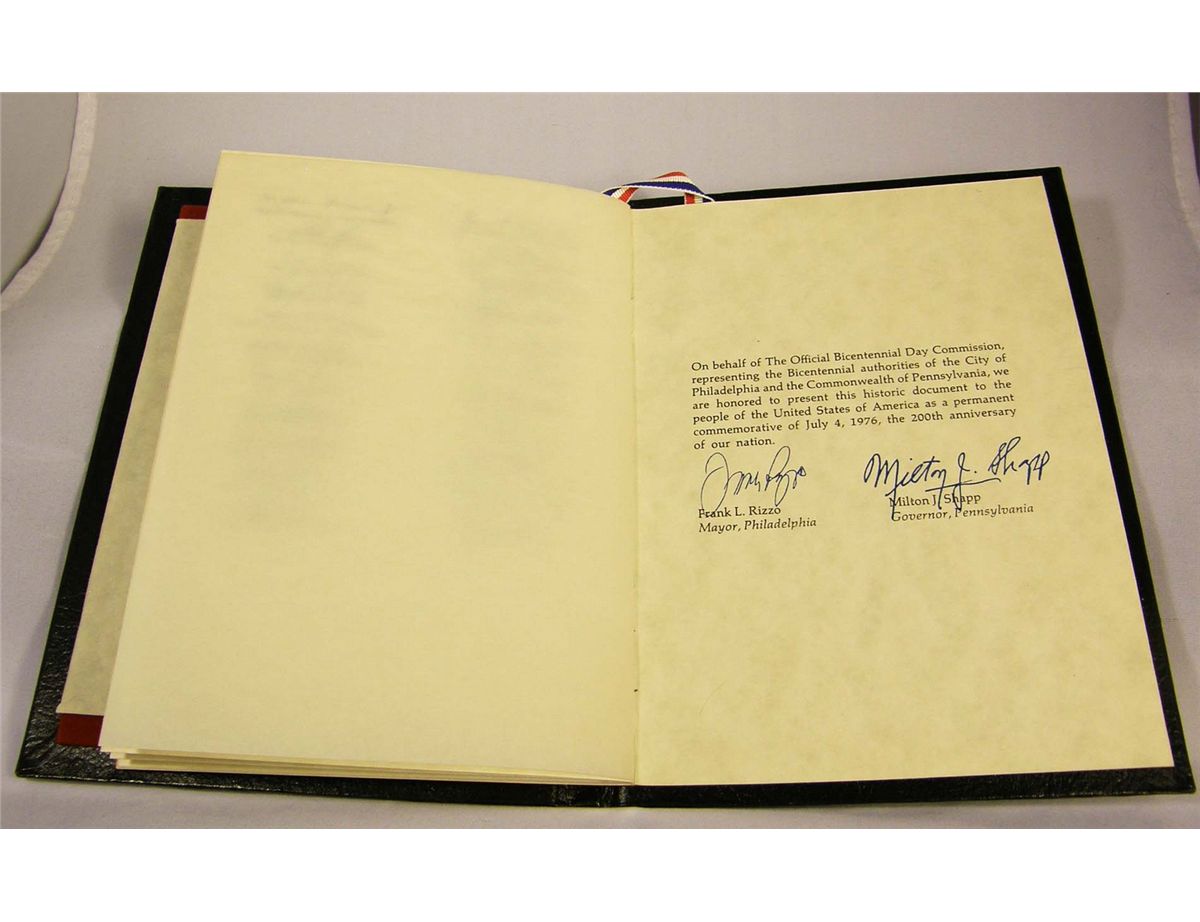 On behalf of The Official Bicentennial Day Commission,
representing the Bicentennial authorities of the City of
Philadelphia and the Commonwealth of Pennsylvania, we
are honored to present this historic document to the
people of the United States of America as a permanent
commemorative of July 4, 1976, the 200th anniversary
of our nation.
Milton J. Shapp
Frank L. Rizzo
Mayor, Philadelphia
Milton J. Shapp
Governor, Pennsylvania